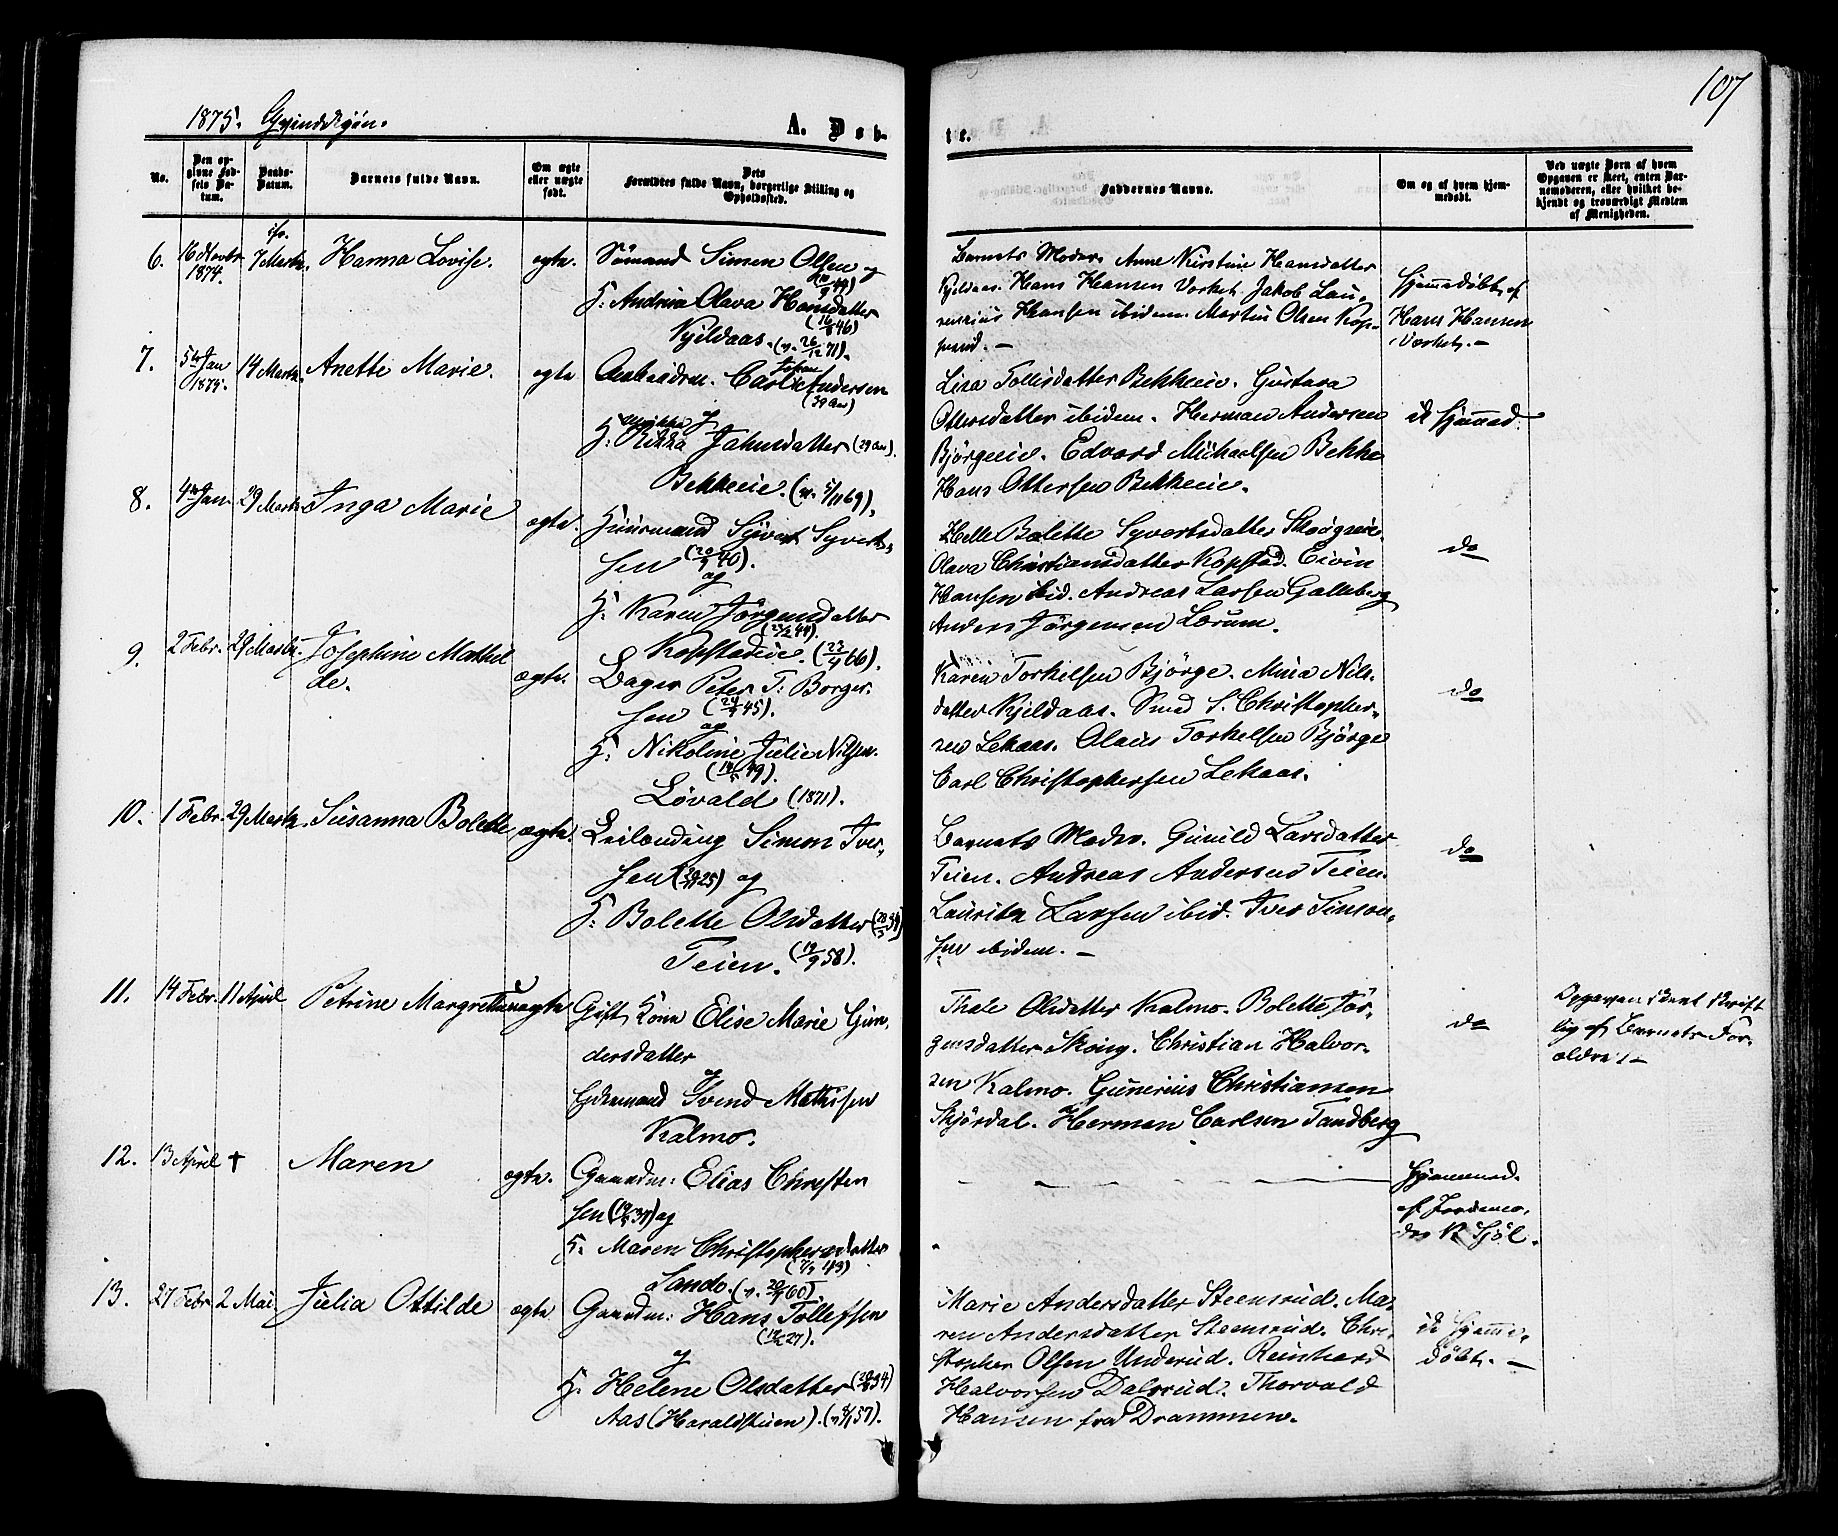 107
1875. Qvindekjøn.
A. Døb-
te.
No.
Den op-
givne Fød-
sels Da-
tum.
Daabs-
Datum.
Barnets fulde Navn.
Om ægte
eller uægte
født.
Dets
Forældres fulde Navn, borgerlige Stilling og
Opholdssted.
Faddernes Navne.
Om og af hvem hjem-
medøbt.
Ved uægte Børn af hvem
Opgaven er skeet, enten Bar-
nemoderen, eller hvilket be-
kjendt og troværdigt Medlem
af Menigheden.
6. 16 Novbr. 1874. 7 Marts. Hanna Lovise. ægte.
Sømand Simen Olsen og
H: Andrea Olava Hansdatter
(16/8 46)
Kjeldaas. (v. 26/12 71).
Barnets Moder. Anne Kirstine Hansdatter
Kjeldaas. Hans Hansen Vorket. Jakob Lau-
rentius Hansen ibidem. Martin Olsen Kop-
perud. —
Hjemmedøbt af
Hans Hansen
Vorket. —
7. 5te Jan 1875. 14 Marts. Anette Marie. ægte
Arbeidsm. Carl Johan Andersen
(39 Aar)
og
H: Ulrikke Rikka Jahnsdatter (29 Aar).
Bekkeeie. (v. 5/11 69).
Lisa Tollisdatter Bekkeeie. Gustava
Ottersdatter ibidem. Herman Andersen
Bjørgeeie. Edvard Michaelsen Bekke
Hans Ottersen Bekkeeie.
ik hjemmed.
8. 4de Jan. 29 Marts. Inga Marie ægte.
Huusmand Syvert Syvert-
sen (20/9 40).
og
H: Karen Jørgensdatter
(23/2 44).
Kopstadeie. (23/4 66).
Helle Bolette Syvertsdatter Skougeeie
Olava Christiansdatter Kopstad. Eivin
Hansen ibid. Andreas Larsen Galleberg
Anders Jørgensen Lærum.
do
9. 2 Febr. 29 Marts. Josephine Mathil
de. ægte.
Bager Peter T: Borger-
sen (24/7 45).
og
H: Nikoline Julie Nilsen.
(14/5 49).
Løvald (1871).
Karen Torkelsen Bjørge. Mina Nils-
datter Kjeldaas. Smed S. Christopher-
sen Lekaas. Olaus Torkelsen Bjørge
Carl Christophersen Lekaas.
do
10. 1 Febr. 29 Marts. Susanna Bolette ægte.
Leilænding Simon Iver-
sen (20/11 25) og
H: Bolette Olsdatter (28/3 34)
Teien. (19/9 58).
Barnets Moder. Gunild Larsdatter
Teien. Andreas Andersen Teien.
Lauritz Larsen ibid. Iver Simon-
sen ibidem. —
do
11. 14 Febr. 11 April Petrine Margrethe uægte
Gift Kone Elise Marie Gun-
dersdatter
og
Enkemand Svend Mathisen
Kalmo.
Thale Olsdatter Kalmo. Bolette Jør-
gensdatter Skoug. Christian Halvor-
sen Kalmo. Gunerius Christiansen
Skjørdal. Herman Carlsen Tandberg
do
Opgaven skeet skrift
lig af Barnets For-
ældre. —
12. 13 April † Maren ægte.
Gaardm: Elias Christen
sen (19/5 37) og
H: Maren Christophersdatter
(7/3 43)
Sando. (v. 20/9 60).
— — — —
Hjemmed.
af Jordemo-
der K. Hjøl.
13. 27 Febr. 2 Mai. Julia Ottilde ægte
Gaardm: Hans Tollefsen
(19/2 27).
og
H: Helene Olsdatter (20/8 34)
Aas (Haraldstuen). (v. 8/1 57).
Marie Andersdatter Steensrud. Ma-
ren Andersdatter Steensrud. Chri-
stopher Olsen Underud. Reinhard
Halvorsen Dalsrud. Thorvald
Hansen fra Drammen.
ik hjemme-
døbt. —